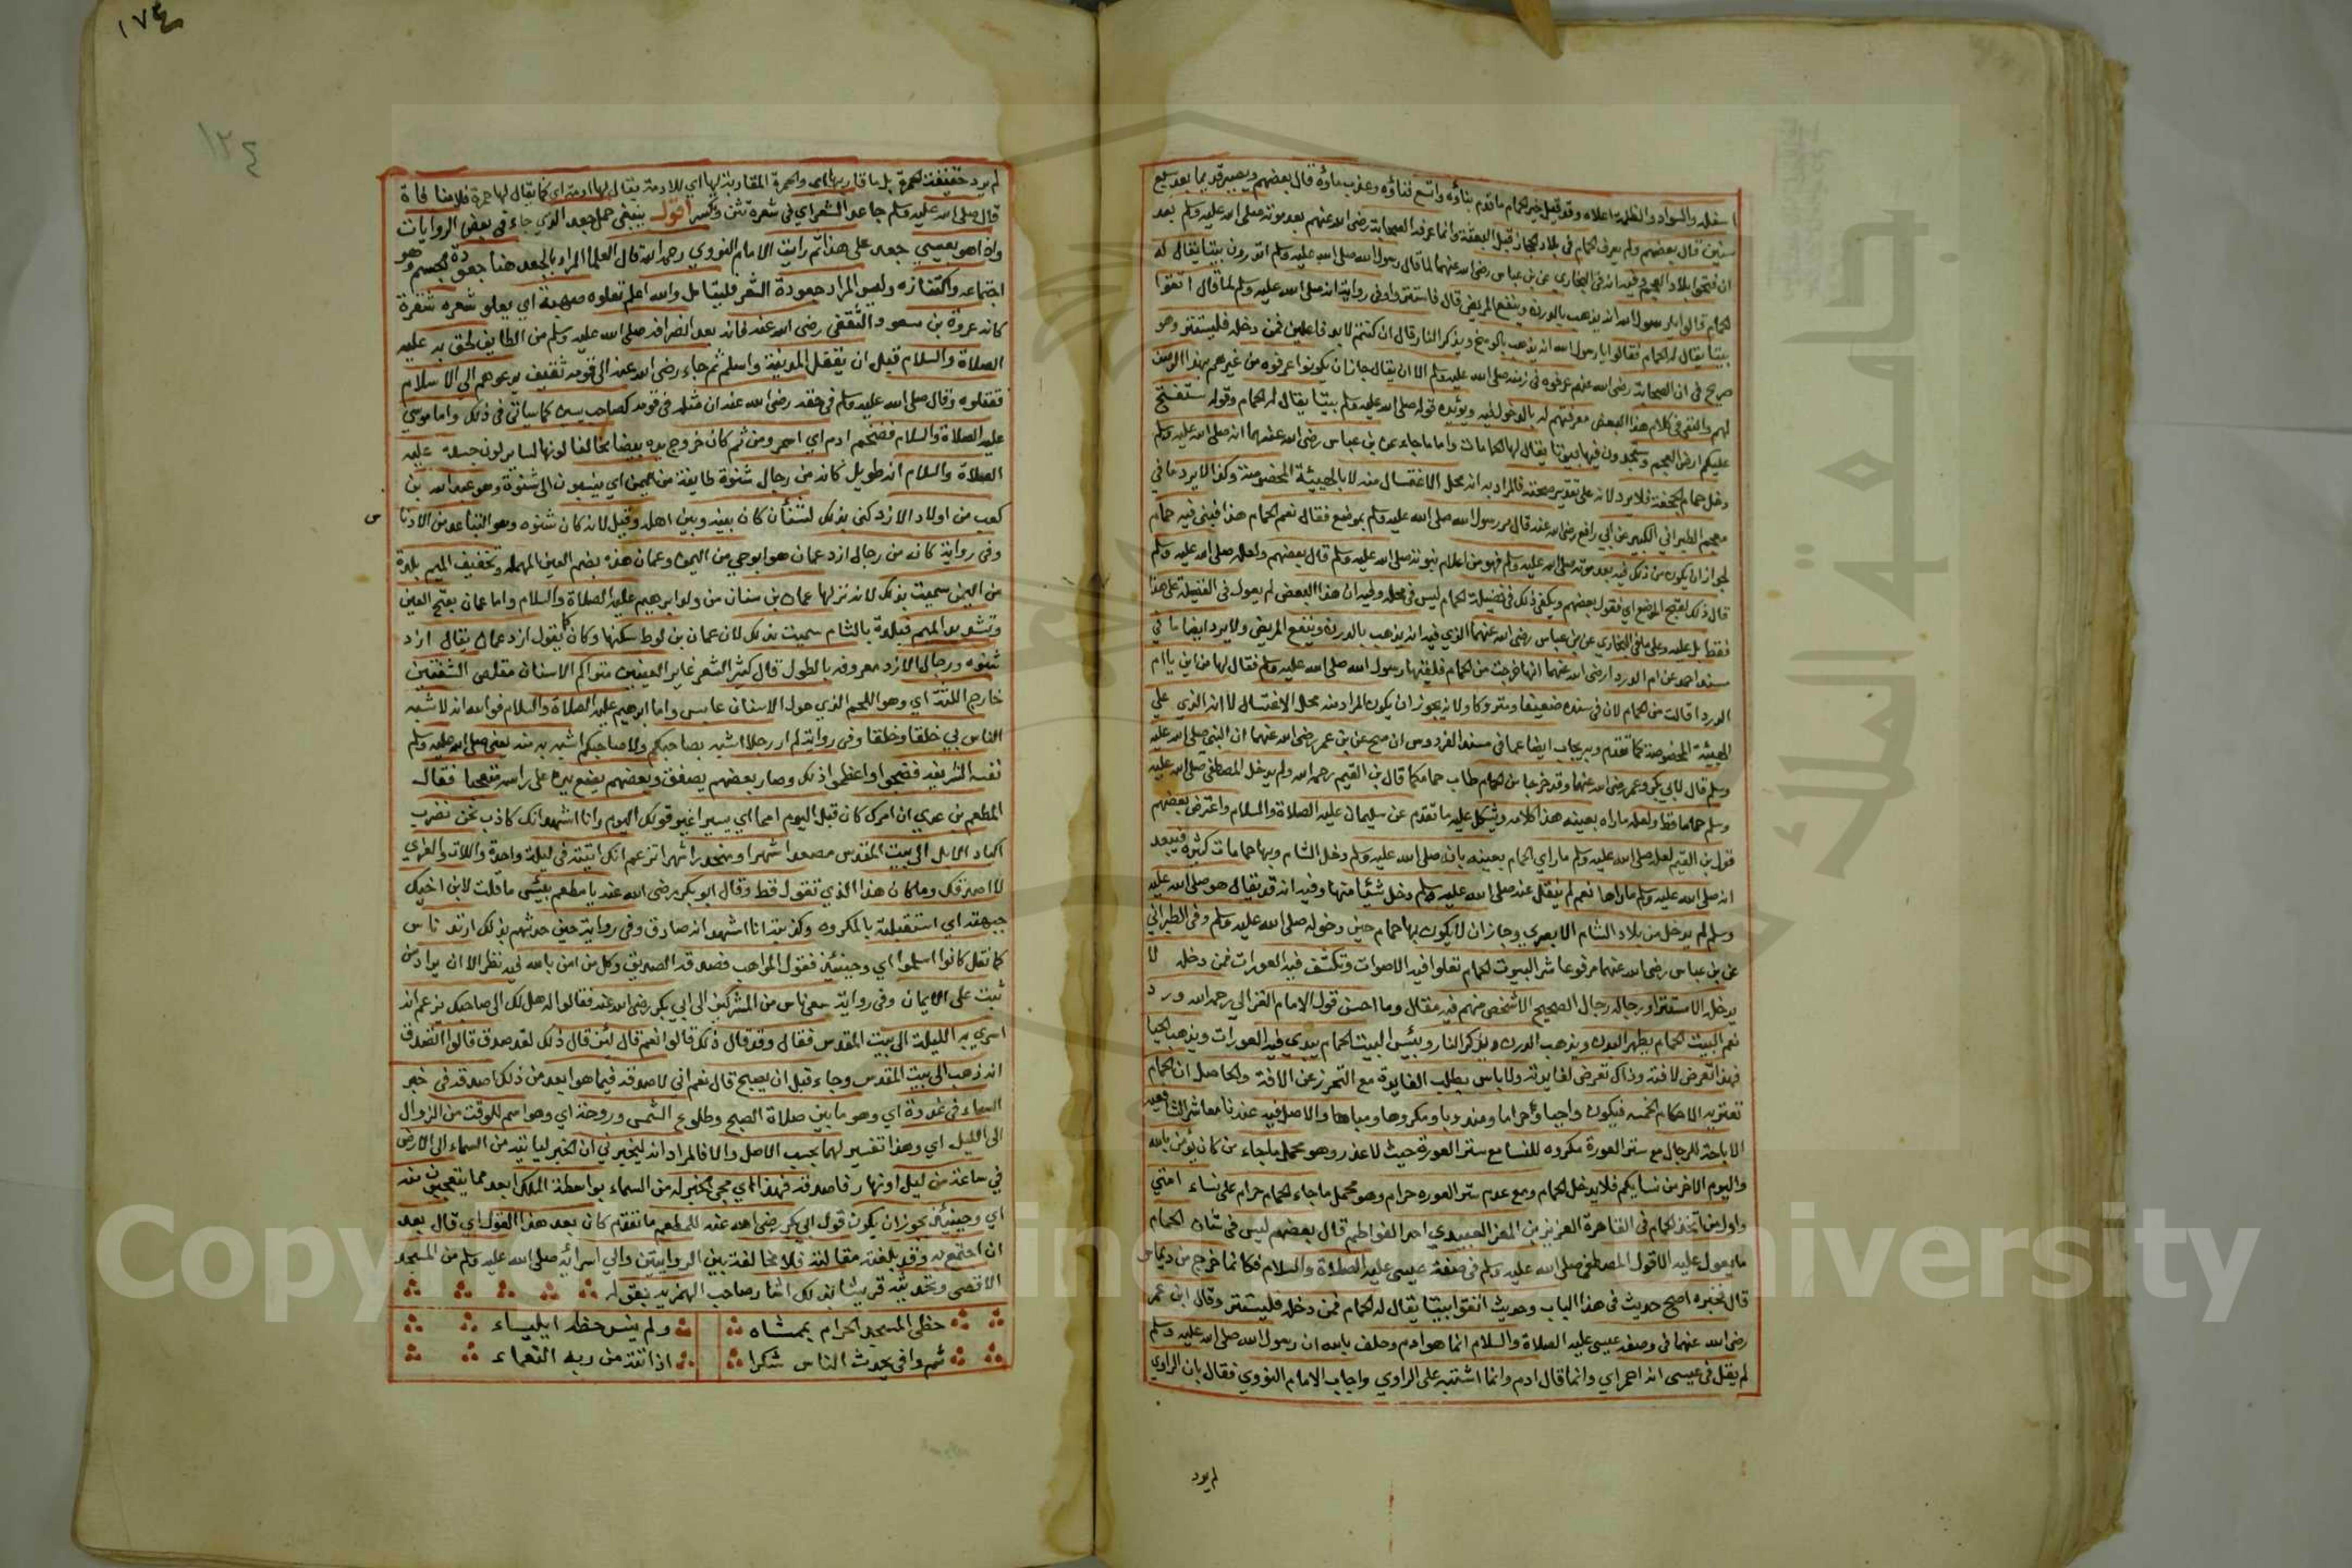 اسفله والسواد والظلمة اعلاه وقد قيل خير الحمام ما قدم بناؤه واتسع فناؤه وعذب ماؤه قال بعضهم ويصير قديما بعد سبع
سنين قال بعضهم ولم يعرف الحمام في بلاد الحجاز قبل البعثة وانما عرفه الصحابة رضى الله عنهم بعد موته صلى الله عليه وسلم بعد
ان فتحوا بلاد العجم وفيه انه في البخاري عن بن عباس رضى الله عنهما لما قال رسول الله صلى الله عليه وسلم اتدرون بيتا يقال له
الحمام قالوا يا رسول الله انه يذهب بالدرن وينفع المريض قال فاستتروا وفي رواية انه صلى الله عليه وسلم لما قال اتقوا
بيتا يقال له الحمام فقالوا يا رسول الله انه يذهب بالوسخ ويذكر النار قال ان كنتم لا بد فاعلين فمن دخله فليستتر وهو
صريح في ان الصحابة رضى الله عنهم عرفوه في زمنه صلى الله عليه وسلم الا ان يقال جاز ان يكونوا عرفوه من غيرهم بهذا الوصف
لهم والنفى في كلام هذا البعض معرفتهم له بالدخول فيه ويؤيده قوله صلى الله عليه وسلم بيتا يقال له الحمام وقوله ستفتح
عليكم ارض العجم وستجدون فيها بيوتا يقال لها الحمامات واما ما جاء عن بن عباس رضى الله عنهما انه صلى الله عليه وسلم
دخل حمام الجحفة فلا يرد لانه على تقدير صحته فالمراد به انه محل الاغتسال منه لا بالهيئة المخصوصة وكذا لا يرد ما في
معجم الطبراني الكبير عن ابي رافع رضى الله عنه قال مر رسول الله صلى الله عليه وسلم بموضع فقال نعم الحمام هذا فبنى فيه حمام
لجواز ان يكون من ذلك فيه بعد موته صلى الله عليه وسلم فهو من اعلام نبوته صلى الله عليه وسلم قال بعضهم ولعله صلى الله عليه وسلم
قال ذلك لقبح الموضع اي فقول بعضهم ويكفي ذلك في فضيلة الحمام ليس في محله وليد ان هذا البعض لم يعول في الفضيلة على هذا
فقط بل عليه وعلى ما في البخاري عن بن عباس رضى الله عنهما الذي فيه انه يذهب بالدرن وينفع المريض ولا يرد ايضا ما في
مسند احمد عن ام الدردا رضى الله عنهما انها خرجت من الحمام فلقيها رسول الله صلى الله عليه وسلم فقال لها من اين يا ام
الدردا قالت من الحمام لان في سنده ضعيفا ومتروكا ولانه يجوز ان يكون المراد منه محل الاغتسال لا انه الذي على
الهيئة المخصوصة كما تقدم وبه يجاب ايضا عما في مسند الفردوس ان صح عن بن عمر رضى الله عنهما ان النبي صلى الله عليه
وسلم قال لابي بكر وعمر رضى الله عنهما وقد خرجا من الحمام طاب حمامكما قال بن القيم رحمه الله ولم يدخل المصطفى صلى الله عليه
وسلم حماما قط ولعله ما راه بعينه هذا كلامه ويشكل عليه ما تقدم عن سليمان عليه الصلاة والسلام واعترض بعضهم
قول بن القيم لعله صلى الله عليه وسلم ما راى الحمام بعينه بانه صلى الله عليه وسلم دخل الشام وبها حمامات كثيرة فيبعد
انه صلى الله عليه وسلم ما راها نعم لم ينقل عنه صلى الله عليه وسلم دخل شيئا منها وفيه انه قد يقال هو صلى الله عليه
وسلم لم يدخل من بلاد الشام الا بصرى وجاز ان لا يكون بها حمام حين دخوله صلى الله عليه وسلم وفي الطبراني
عن بن عباس رضى الله عنهما مرفوعا شر البيوت الحمام تعلوا فيه الاصوات وتكشف فيه العورات فمن دخله لا
يدخله الا مستترا ورجاله رجال الصحيح الا شخص منهم فيه مقال وما احسن قول الامام الغزالي رحمه الله ورد
نعم البيت الحمام يطهر البدن ويذهب الدرن ويذكر النار وبئس البيت الحمام يبدي فيه العورات ويذهب الحيا
فهذا تعرض لافته وذاك تعرض لفايدته ولا باس بطلب الفايدة مع التحرز عن الافة والحاصل ان الحمام
تعتريه الاحكام الخمسة فيكون واجبا وحراما ومندوبا ومكروها ومباحا والاصل فيه عندنا معاشر الشافعية
الاباحة للرجال مع ستر العورة مكروه للنسا مع ستر العورة حيث لا عذر وهو محمل ما جاء من كان يؤمن بالله
واليوم الاخر من نسايكم فلا يدخل الحمام ومع عدم ستر العورة حرام وهو محمل ما جاء الحمام حرام على نساء امتي
واول من اتخذ الحمام في القاهرة العزيز بن المعز العبيدي احد الفواطم قال بعضهم ليس في شان الحمام
ما يعول عليه الا قول المصطفى صلى الله عليه وسلم في صفة عيسى عليه الصلاة والسلام فكانما خرج من ديماس
قال مخبره اصح حديث في هذا الباب وحديث اتقوا بيتا يقال له الحمام فمن دخله فليستتر وقال ابن عمر
رضى الله عنهما في وصف عيسى عليه الصلاة والسلام انما هو ادم وحلف بالله ان رسول الله صلى الله عليه وسلم
لم يقل في عيسى انه احمر اي وانما قال ادم وانما اشتبه على الراوي واجاب الامام النووي فقال بان الراوي
لم يرد
١٧٤
١٢٤
لم يرد حقيقة الحمرة بل ما قاربها اي والحمرة المقاربة لها اي للادمة يقال لها ادمة اي كما يقال لها حمرة فلا منافاة
قال صلى الله عليه وسلم جاعد الشعر اي في شعره تثن وتكسر اقول ينبغى حمل جعد الذي جاء في بعض الروايات
واذا هو بعيسي جعد على هذا ثم رايت الامام النووي رحمه الله قال العلما المراد بالجعد هنا جعودة الجسم وهو
اجتماعه واكتنازه وليس المراد جعودة الشعر فليتامل والله اعلم تعلوه صهبة اي يعلو شعره شقرة
كانه عروة بن مسعود الثقفي رضى الله عنه فانه بعد انصرافه صلى الله عليه وسلم من الطايف لحق به عليه
الصلاة والسلام قبل ان يدخل المدينة واسلم ثم جاء رضى الله عنه الى قومه ثقيف يدعوهم الى الاسلام
فقتلوه وقال صلى الله عليه وسلم في حقه رضى الله عنه ان مثله في قومه كصاحب يسين كما سياتى في ذلك واما موسي
عليه الصلاة والسلام فضخم ادم اي اسمر ومن ثم كان خروج يده بيضا مخالفا لونها لساير لون جسده عليه
الصلاة والسلام انه طويل كانه من رجال شنوة طايفة من اليمن اي ينسبون الى شنوة وهو عبد الله بن
كعب من اولاد الازد كنى بذلك لشنأن كان بينه وبين اهله وقيل لانه كان شنوه وهو التباعد من الادنا س
وفي رواية كانه من رجال ازد عمان هو ابو حي من اليمن وعمان هذه بضم العين المهملة وتخفيف الميم بلدة
من اليمن سميت بذلك لانه نزلها عمان بن سنان من ولد ابرهيم عليه الصلاة والسلام واما عمان بفتح العين
وتشديد الميم فبلدة بالشام سميت بذلك لان عمان بن لوط سكنها وكان يقول ازد عمان يقال ازد
شنوه ورجال الازد معروفه بالطول قال كثير الشعر غاير العينين متراكم الاسنان مقلص الشفتين
خارج اللثة اي وهو اللحم الذي حول الاسنان عابس واما ابرهيم عليه الصلاة والسلام فوالله انه لاشبه
الناس بي خلقا وخلقا وفي رواية لم ار رجلا اشبه بصاحبكم ولا صاحبكم اشبه به منه يعنى صلى الله عليه وسلم
نفسه الشريفة فضجوا واعظموا ذلك وصار بعضهم يصفق وبعضهم يضع يده على راسه متعجبا فقال
المطعم بن عدي ان امرك كان قبل اليوم امما اي يسيرا غير قولك اليوم وانا اشهد انك كاذب نحن نضرب
اكباد الابل الى بيت المقدس مصعدا شهرا ومنحدرا شهرا تزعم انك اتيته في ليلة واحدة واللات والعزى
لا اصدقك وما كان هذا الذي تقول قط وقال ابو بكر رضى الله عنه يا مطعم بئس ما قلت لابن اخيك
جبهته اي استقبلته بالمكروه وكذبته انا اشهد انه صادق وفي رواية حين حدثهم بذلك ارتد ناس
كما نقل كانوا اسلموا اي وحينئذ فقول المواهب فصدقه الصديق وكل من امن بالله فيه نظر الا ان يراد من
ثبت على الايمان وفي رواية سعى ناس من المشركين الى ابي بكر رضى الله عنه فقالوا له هل لك الى صاحبك يزعم انه
اسري به الليلة الى بيت المقدس فقال وقد قال ذلك قالوا نعم قال لئن قال ذلك لقد صدق قالوا اتصدق
انه ذهب الى بيت المقدس وجاء قبل ان يصبح قال نعم اني لاصدقه فيما هو ابعد من ذلك اصدقه في خبر
السماء في غدوة اي وهو ما بين صلاة الصبح وطلوع الشمس وروحة اي وهو اسم للوقت من الزوال
الى الليل اي وهذا تفسير لهما بحسب الاصل والا فالمراد انه ليخبرني ان الخبر لياتيه من السماء الى الارض
في ساعة من ليل او نهار فاصدقه فهذا اي مجي الخبر له من السماء بواسطة الملك ابعد مما تتعجبون منه
اي وحينئذ يجوز ان يكون قول ابي بكر رضى الله عنه للمطعم ما تقدم كان بعد هذا القول اي قال بعد
ان اجتمع به وقد بلغته مقالته فلا مخالفة بين الروايتين والى اسرائه صلى الله عليه وسلم من المسجد
الاقصى وتحديثه قريشا بذلك اشار صاحب الهمزية بقوله
حظى المسجد الحرام بممشاه ولم ينس حظه ايلياء
ثم وافى يحدث الناس شكرا اذ اتته من ربه النعماء
Copyright © King Saud University
جامعة الملك سعود